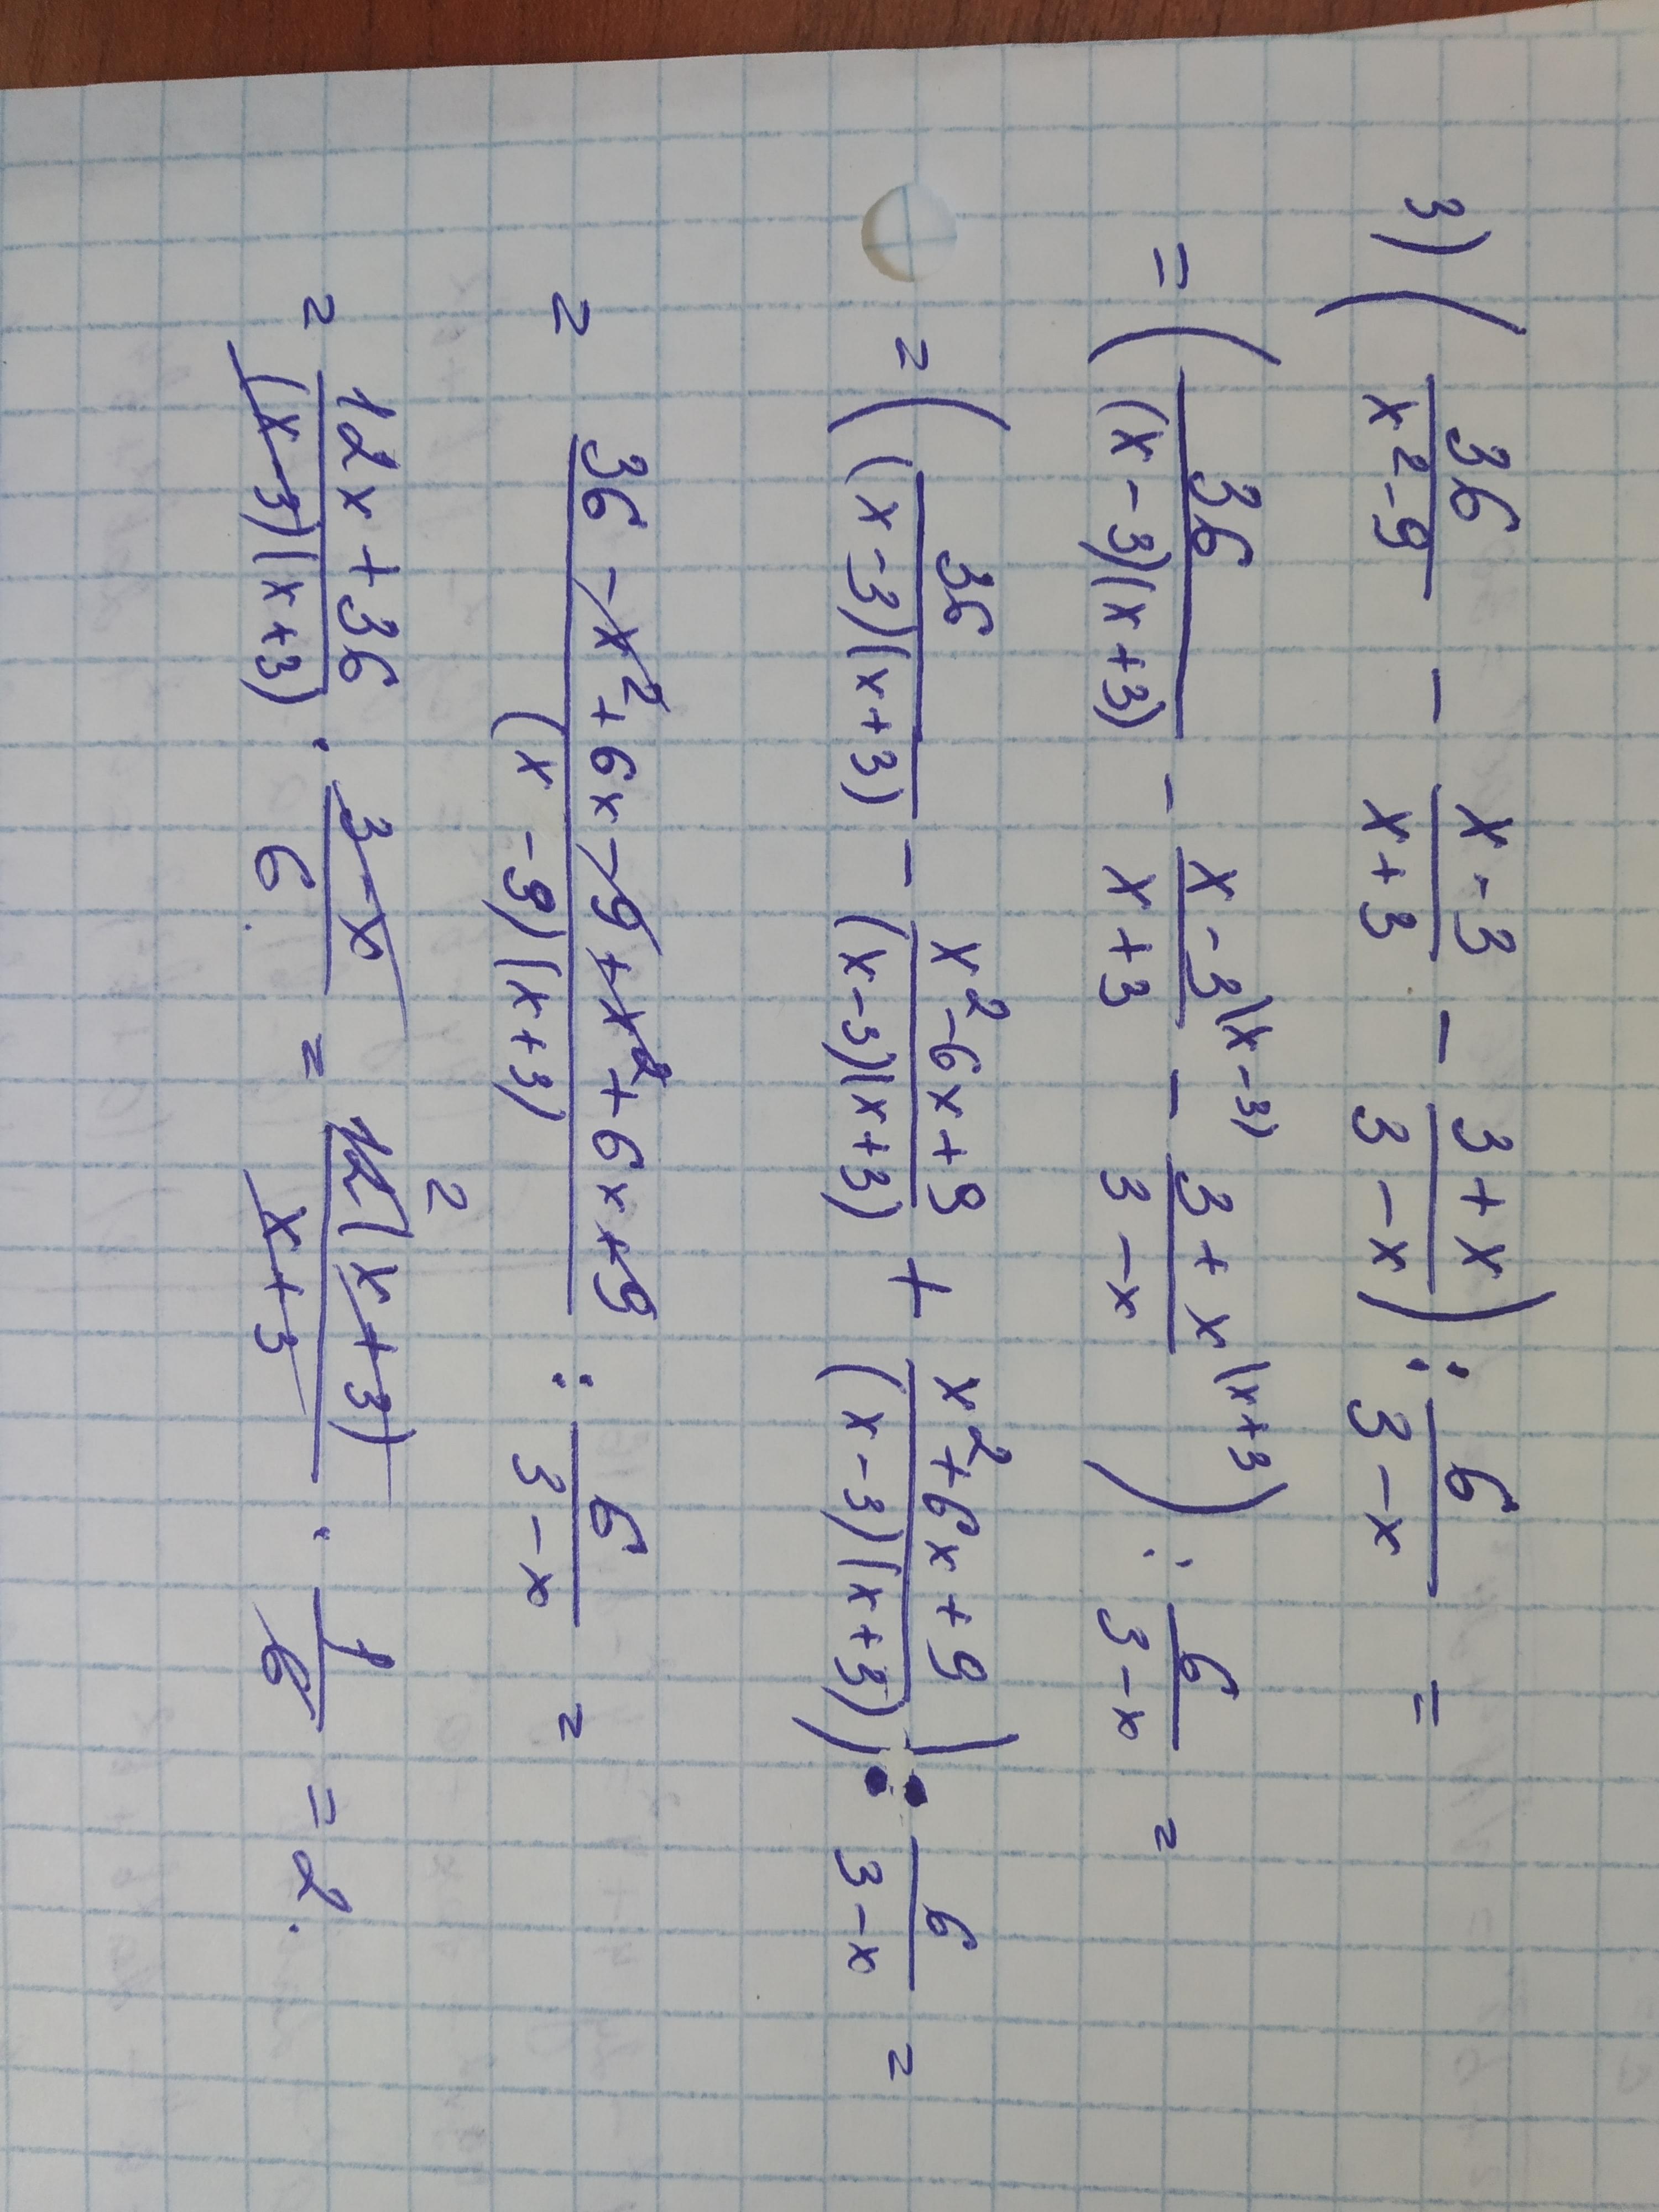 3) ( 36/(x²-9) - (x-3)/(x+3) - (3+x)/(3-x) ) : 6/(3-x) =
= ( 36/((x-3)(x+3)) - (x-3)/(x+3) \(x-3) - (3+x)/(3-x) \(x+3) ) : 6/(3-x) =
= ( 36/((x-3)(x+3)) - (x²-6x+9)/((x-3)(x+3)) + (x²+6x+9)/((x-3)(x+3)) ) : 6/(3-x) =
= (36-x²+6x-9+x²+6x+9)/((x-3)(x+3)) : 6/(3-x) =
= (12x+36)/((x-3)(x+3)) · (3-x)/6 = 12(x+3)/(x+3) 2 · 1/6 = 2.